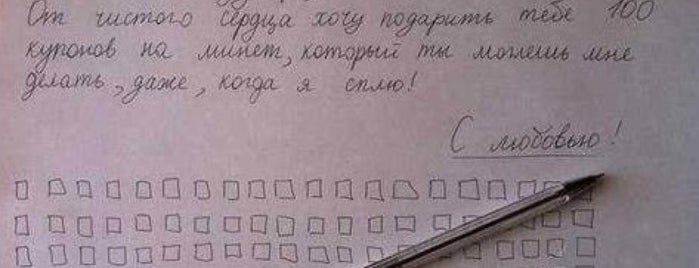 От чистого сердца хочу подарить тебе 100
купонов на минет, который ты можешь мне
делать, даже, когда я сплю!
С любовью!